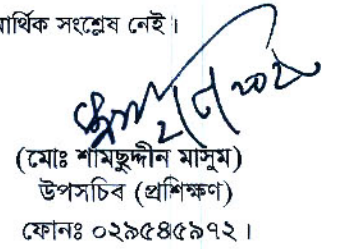 আর্থিক সংশ্লেষ নেই।
(মোঃ শামছুদ্দীন মাসুম)
উপসচিব (প্রশিক্ষণ)
ফোনঃ ০২৯৫৪৫৯৭২।